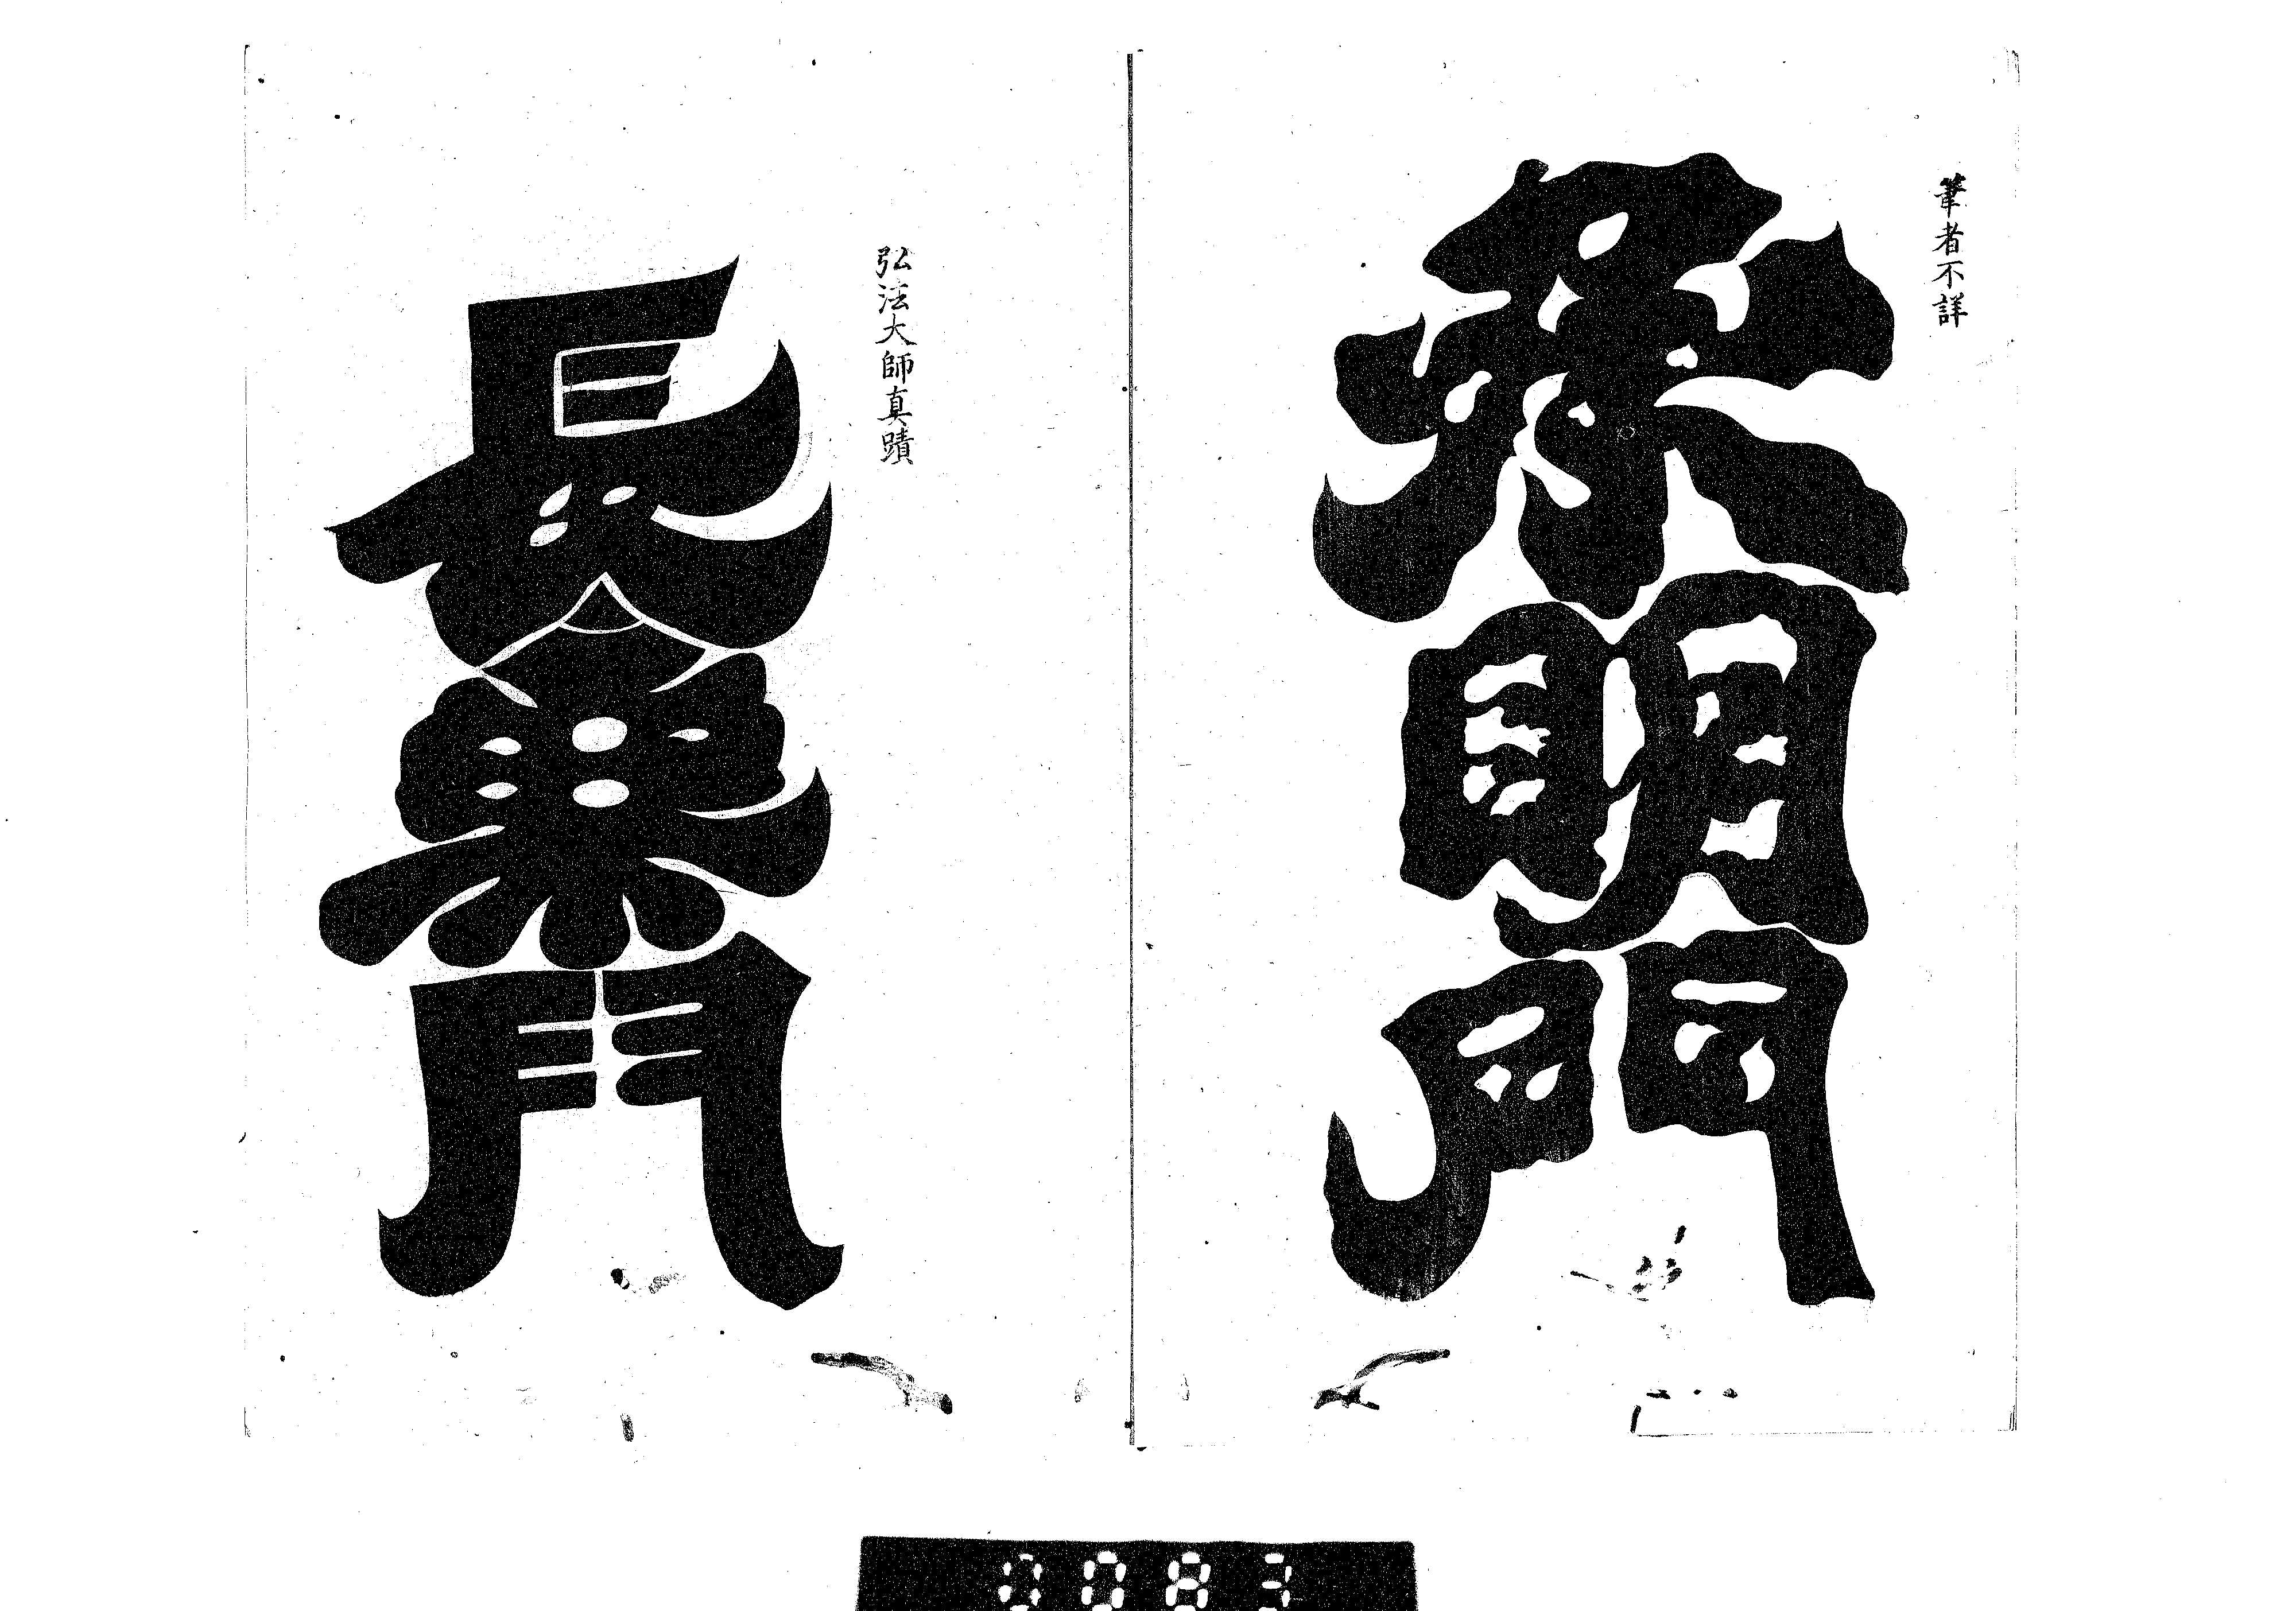 筆者不詳
承明門
弘法大師真蹟
長樂門
0083